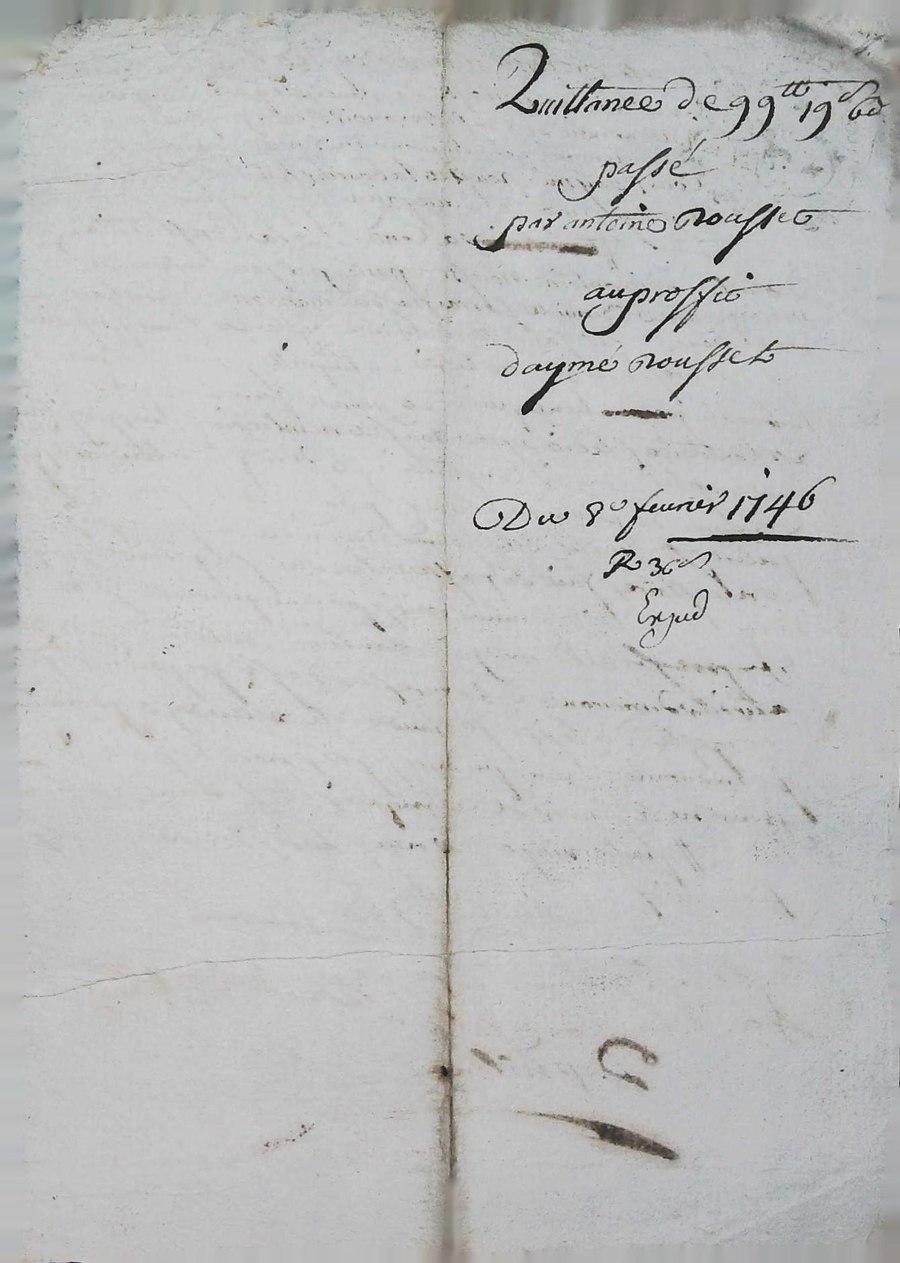 Quittance de 99tt 19s 6d
passé
par antoine rousset
au proffit
daymé rousset
Du 8e feurier 1746
R 36s
Expéd